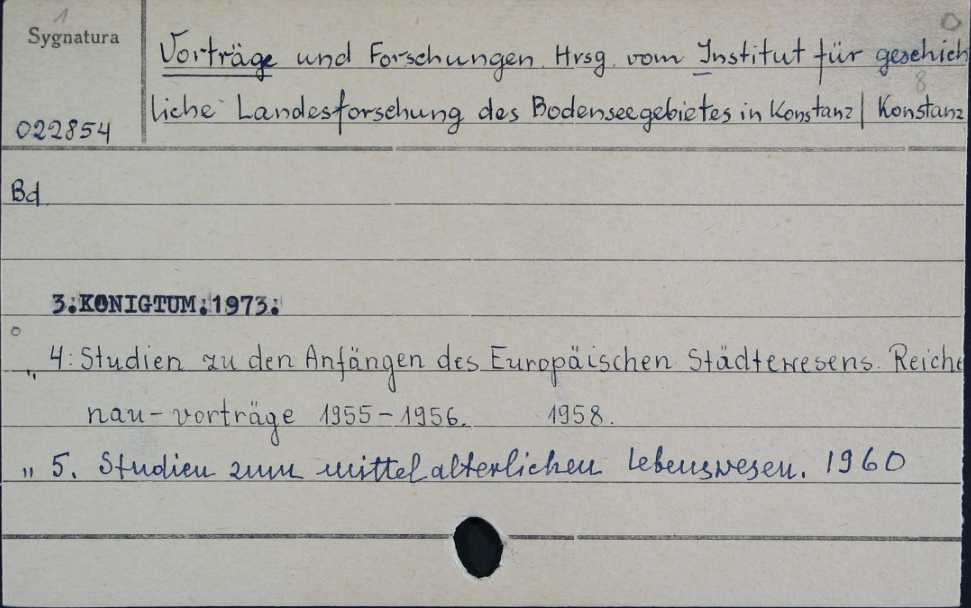 1
Sygnatura
022854
Vorträge und Forschungen. Hrsg. vom Institut für geschich
liche Landesforschung des Bodenseegebietes in Konstanz | Konstanz
8
Bd.
3:KONIGTUM:1973:
" 4: Studien zu den Anfängen des Europäischen Städtewesens. Reiche
nau-vorträge 1955-1956. 1958.
" 5. Studien zum mittelalterlichen Lebenswesen. 1960